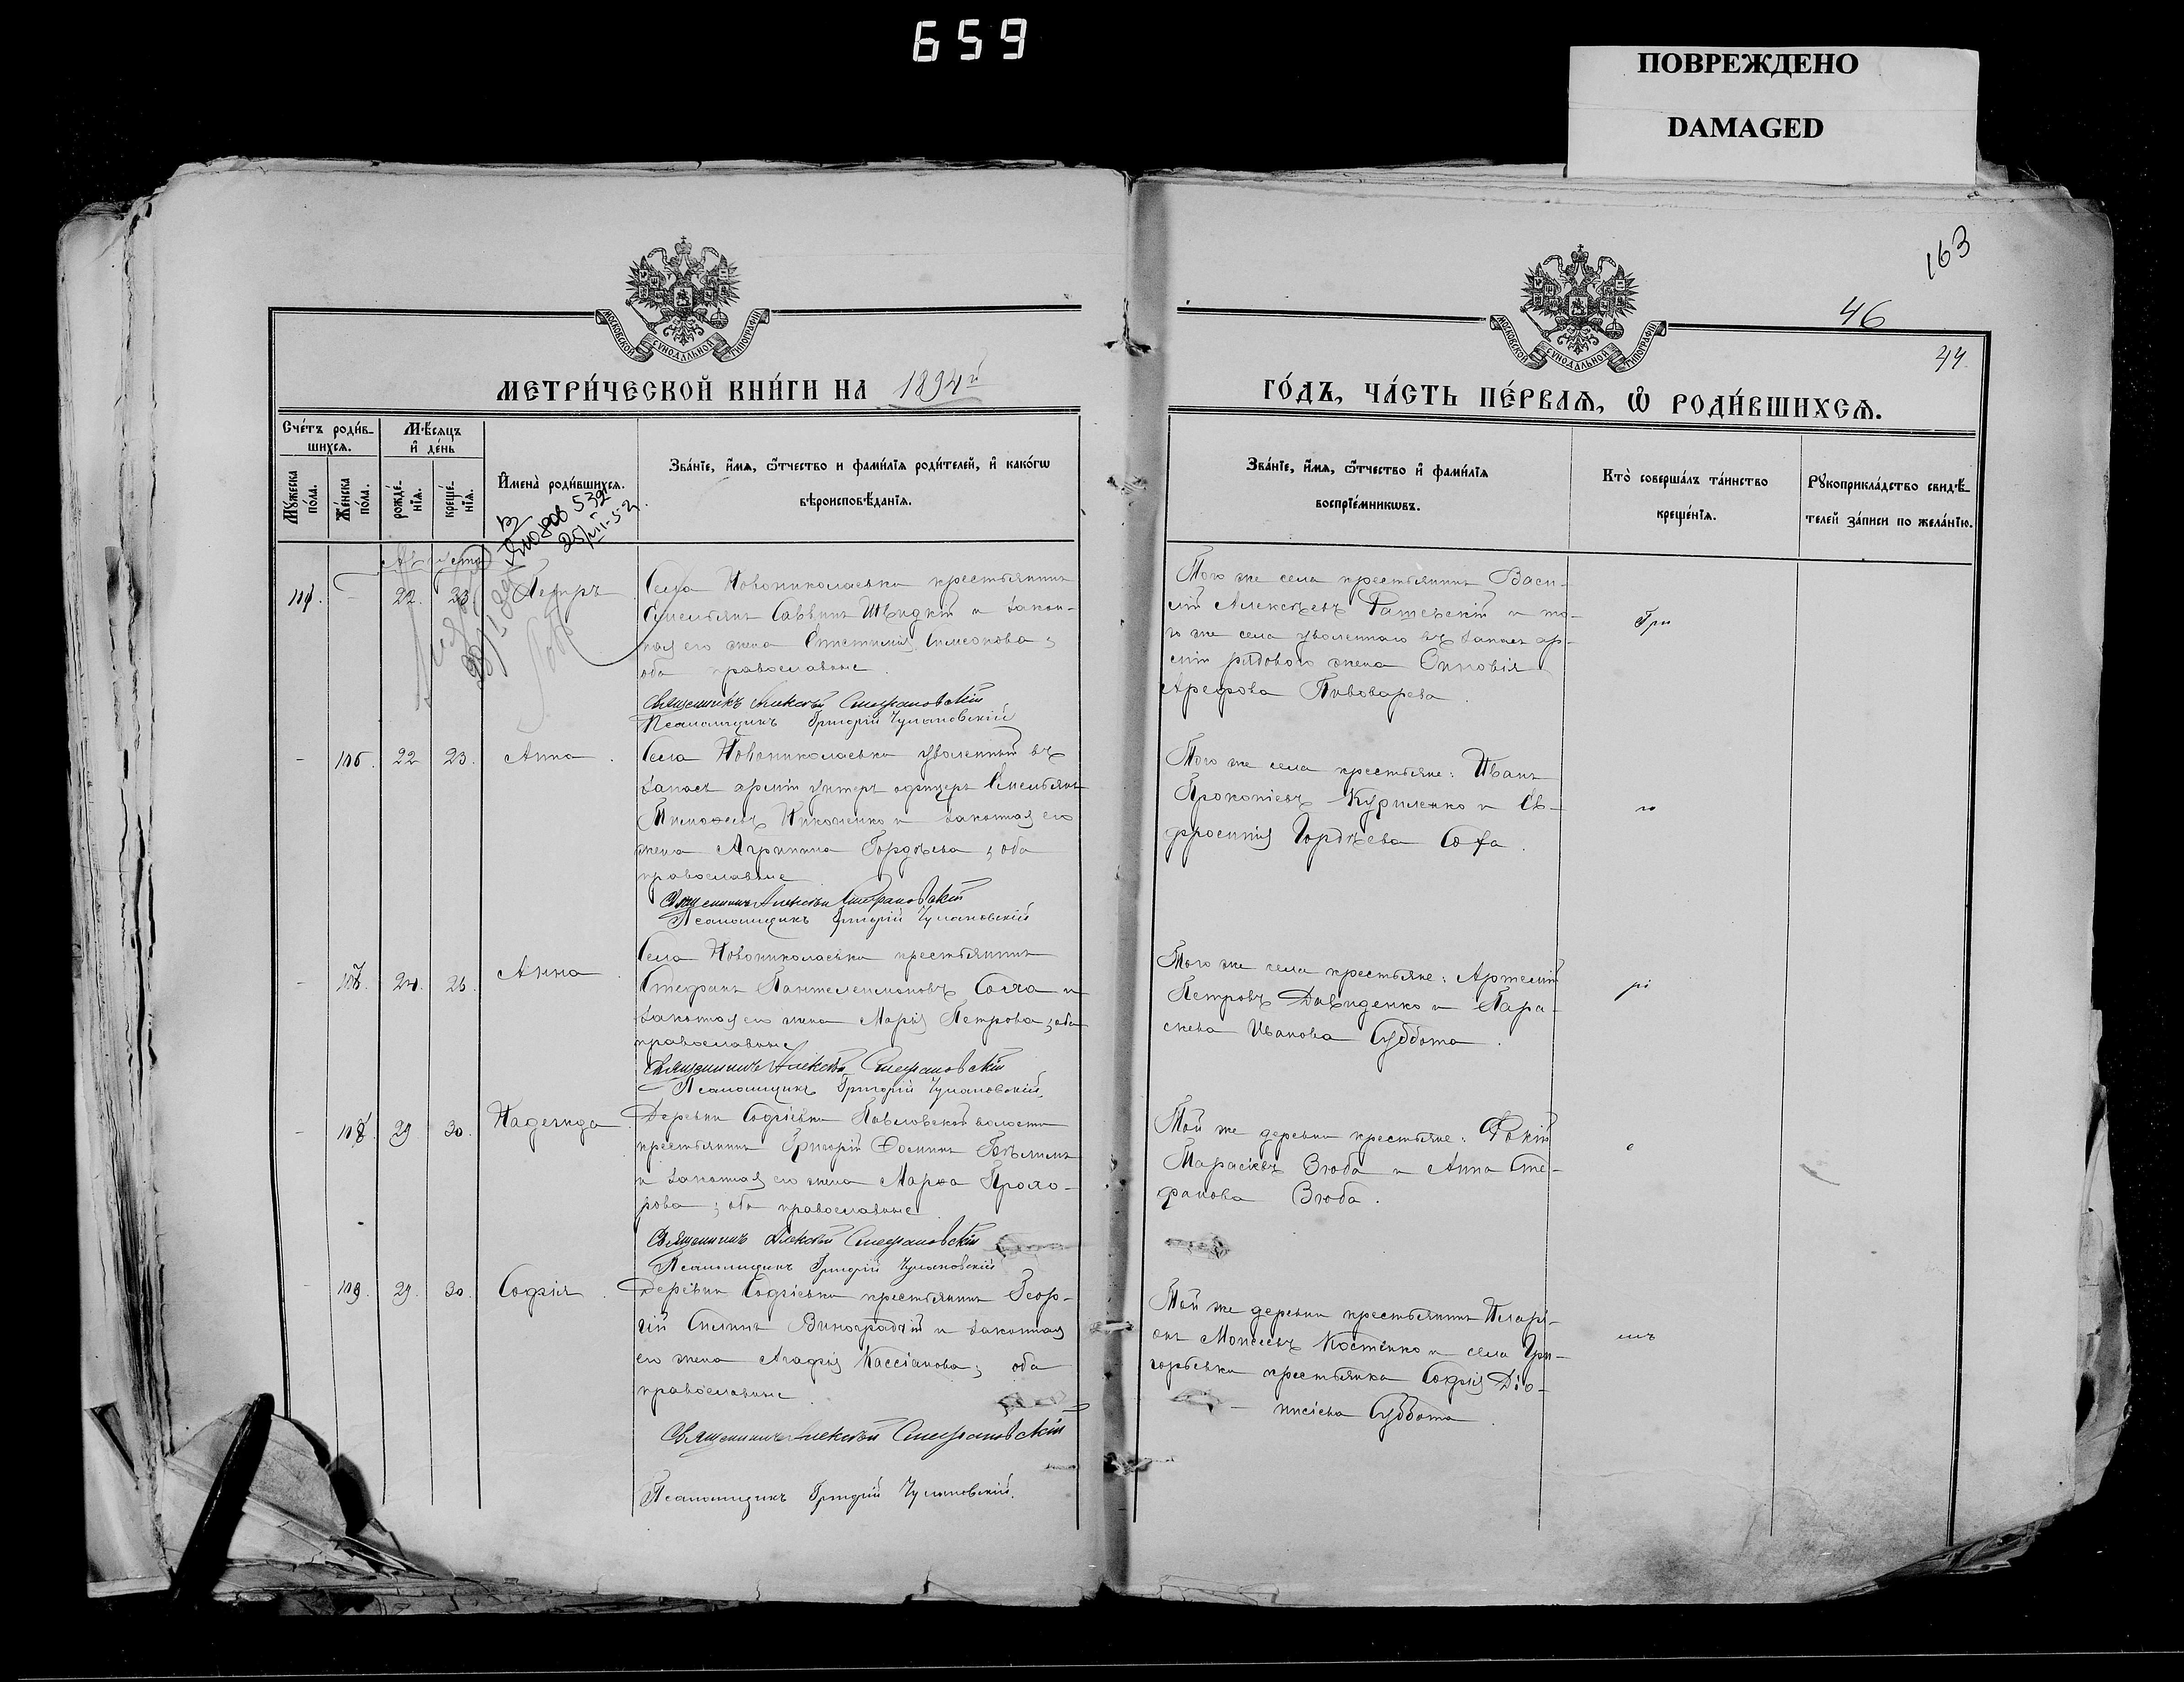 659
ПОВРЕЖДЕНО
DAMAGED
163
46
44.
МОСКОВСКОЙ СѴНОДАЛЬНОЙ ТИПОГРАФІИ
МОСКОВСКОЙ СѴНОДАЛЬНОЙ ТИПОГРАФІИ
МЕТРИ́ЧЕСКОЙ КНИ́ГИ НА 1894й
ГО́ДЪ, ЧА́СТЬ ПЕ́РВАѦ, Ѡ РОДИ́ВШИХСѦ.
Сче́тъ роди́в-
шихсѧ.
Мѣ́сѧцъ
и҆ де́нь
Мꙋ́жеска
по́ла.
Же́нска
по́ла.
рожде́-
нїѧ.
креще́-
нїѧ.
И҆мена̀ роди́вшихсѧ.
Зва́нїе, и҆́мѧ, ѻ҆́тчество и фами́лїѧ роди́телей, и҆ како́гѡ
вѣроисповѣ́данїѧ.
Зва́нїе, и҆́мѧ, ѻ҆́тчество и҆ фами́лїѧ
воспрїе́мникѡвъ.
Кто̀ соверша́лъ та́инство
креще́нїѧ.
Рꙋкоприкла́дство свидѣ́-
телей за́писи по жела́нїю.
22. 23 Петръ
Села Новониколаевки крестьянинъ
Емельянъ Саввинъ Швидкій и закон-
ная его жена Евстимія Симеонова;
оба православные.
Священникъ Алексѣй Стефановскій
Псаломщикъ Григорій Чулановскій
Того же села крестьянинъ Васи-
лій Алексѣевъ Рашевскій и то-
го же села уволеннаго въ запасъ ар-
міи рядового жена Зиновія
Арефова Пивоварева.
Гри
- 106. 22 23. Анна.
Села Новониколаевки уволенный въ
запасъ арміи унтеръ офицеръ Емельянъ
Тимофеевъ Никоненко и законная его
жена Агрипина Гордѣева; оба
православные
Священникъ Алексѣй Стефановскій
Псаломщикъ Григорій Чулановскій
Того же села крестьяне: Иванъ
Прокопіевъ Куриленко и Ев-
фросинія Гордѣева Соха.
го
- 107. 24. 26. Анна.
Села Новониколаевки крестьянинъ
Стефанъ Пантелеимоновъ Соха и
законная его жена Марія Петрова; оба
православные
Священникъ Алексѣй Стефановскій
Псаломщикъ Григорій Чулановскій.
Того же села крестьяне: Артемій
Петровъ Давиденко и Пара-
скева Иванова Суббота.
рі
- 108. 29 30. Надежда.
Деревни Софіевки Павловской волости
крестьянинъ Григорій Фоминъ
и законная его жена Марфа Прохо-
рова; оба православные
Священникъ Алексѣй Стефановскій
Псаломщикъ Григорій Чулановскій
Той же деревни крестьяне: Фокій
Тарасіевъ Зюба и Анна Сте-
фанова Зюба.
й
- 109. 29. 30. Софія.
Деревни Софіевки крестьянинъ Геор-
гій Силинъ Виноградчій и законная
его жена Агафія Кассіанова; оба
православные.
Священникъ Алексѣй Стефановскій
Псаломщикъ Григорій Чулановскій.
Той же деревни крестьянинъ Иларі-
онъ Моисеевъ Костенко и села Гри-
горьевки крестьянка Софія Діо-
нисіева Суббота.